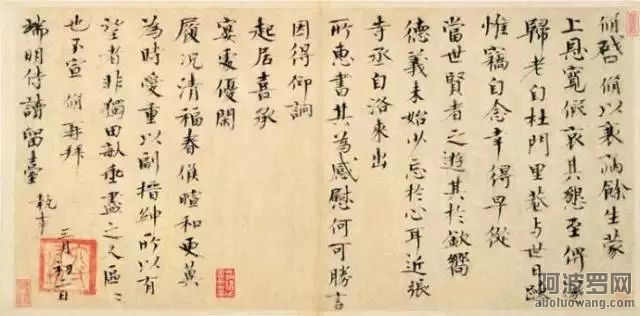 脩啓脩以衰病餘生蒙
上恩寬假哀其懇至俾遂
歸老自杜門里巷與世日疏
惟竊自念幸得早從
當世賢者之遊其於欽嚮
德義未始少忘於心耳近張
寺丞自洛來出
所惠書其為感慰何可勝言
因得仰詢
起居喜承
宴處優閑
履況清福春候暄和更冀
為時愛重以副搢紳所以有
望者非獨田畝垂盡之人區〻
也不宣脩再拜
端明侍讀留臺執事
三月初二日
阿波罗网
aboluowang.com